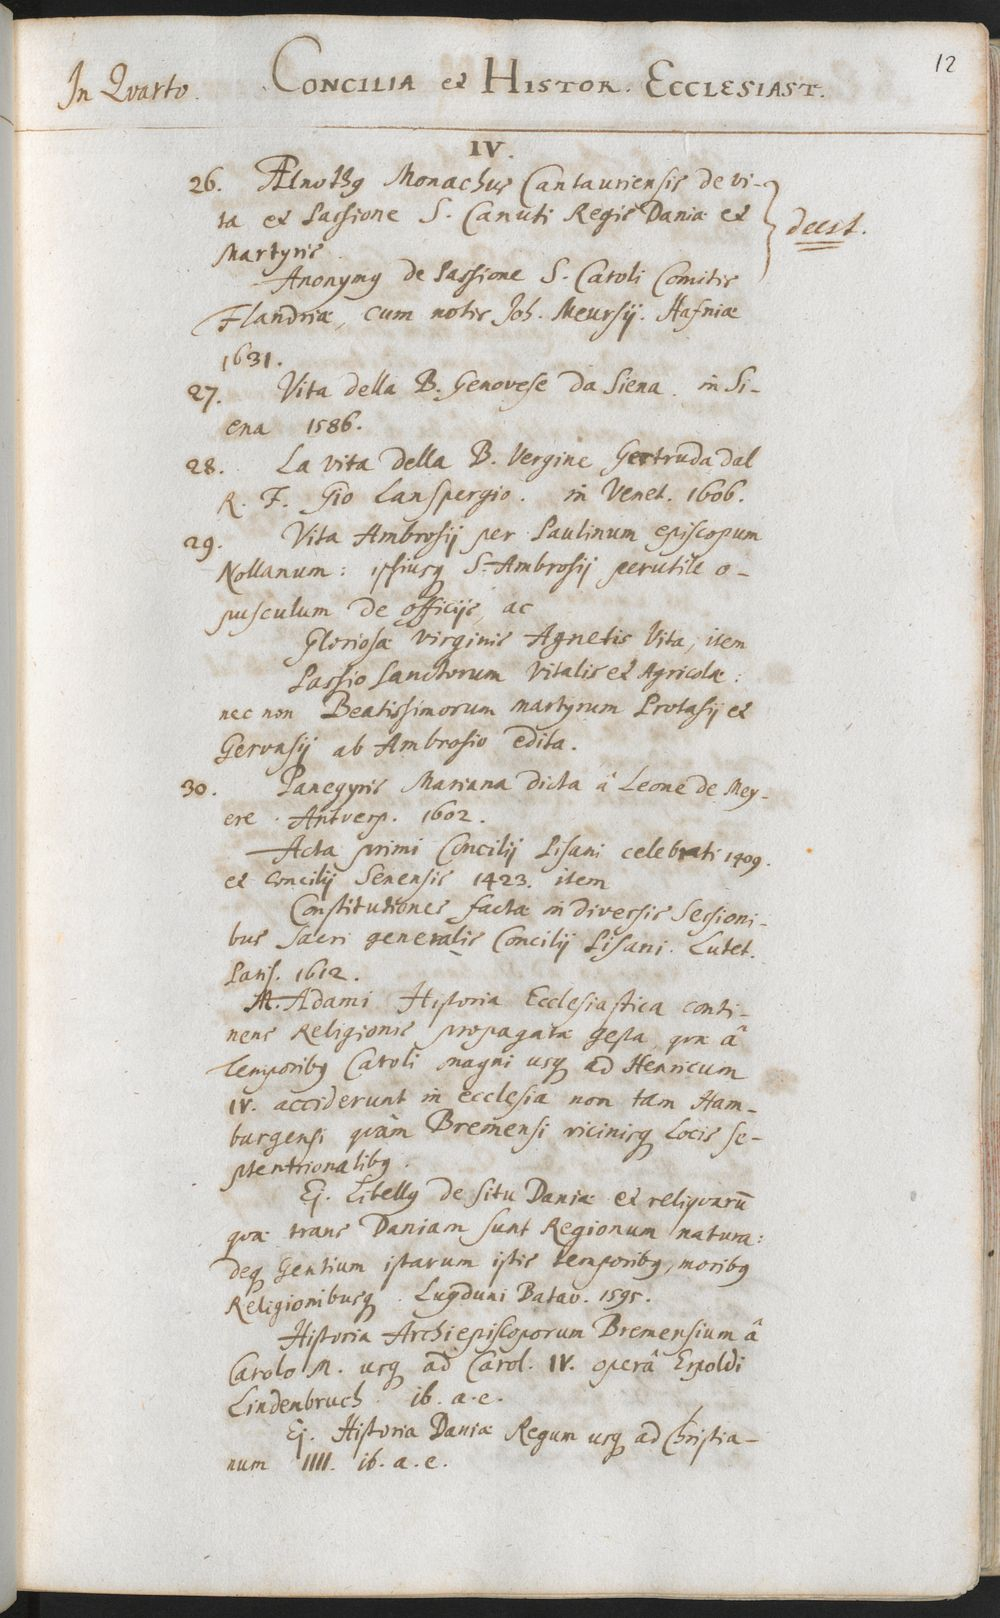 12
In Qvarto. CONCILIA et HISTOR. ECCLESIAST.
IV.
26. Ælnothꝯ Monachus Cantauriensis de vi-
ta et Passione S. Canuti Regis Daniæ et
Martyris.
deest.
Anonymꝯ de Passione S. Caroli Comitis
Flandriæ, cum notis Joh. Meursij. Hafniæ
1631.
27. Vita della B. Genovese da Siena. in Si-
ena 1586.
28. La vita della B. Vergine Gertruda dal
R. F. Gio Lanspergio. in Venet. 1606.
29. Vita Ambrosij per Paulinum episcopum
Nollanum: ipsiusq S. Ambrosij perutile o-
pusculum de officijs, ac
Gloriosæ virginis Agnetis Vita, item
Passio Sanctorum Vitalis et Agricolæ:
nec non Beatissimorum martyrum Protasij et
Gervasij ab Ambrosio edita.
30. Panegyris Mariana dicta â Leone de Mey-
ere. Antverp. 1602.
Acta primi Concilij Pisani celebrati 1409.
et Concilij Senensis 1423. item
Constitutiones factæ in diversis Sessioni-
bus Sacri generalis Concilij Pisani. Lutet.
Paris. 1612.
M. Adami Historia Ecclesiastica conti-
nens Religionis propagatæ gesta, quæ â
temporibꝯ Caroli magni usq ad Henricum
IV. acciderunt in ecclesia non tam Ham-
burgensi quàm Bremensi vicinisq Locis se-
ptentrionalibꝯ.
Ej. Libellꝯ de Situ Daniæ et reliqvarū
qvæ trans Daniam sunt Regionum natura:
deq Gentium istarum istis temporibꝯ, moribꝯ
Religionibusq. Lugduni Batav. 1595.
Historia Archiepiscoporum Bremensium â
Carolo M. usq ad Carol. IV. operâ Erpoldi
Lindenbruch. ib. a. e.
Ej. Historia Daniæ Regum usq ad Christia-
num IIII. ib. a. e.